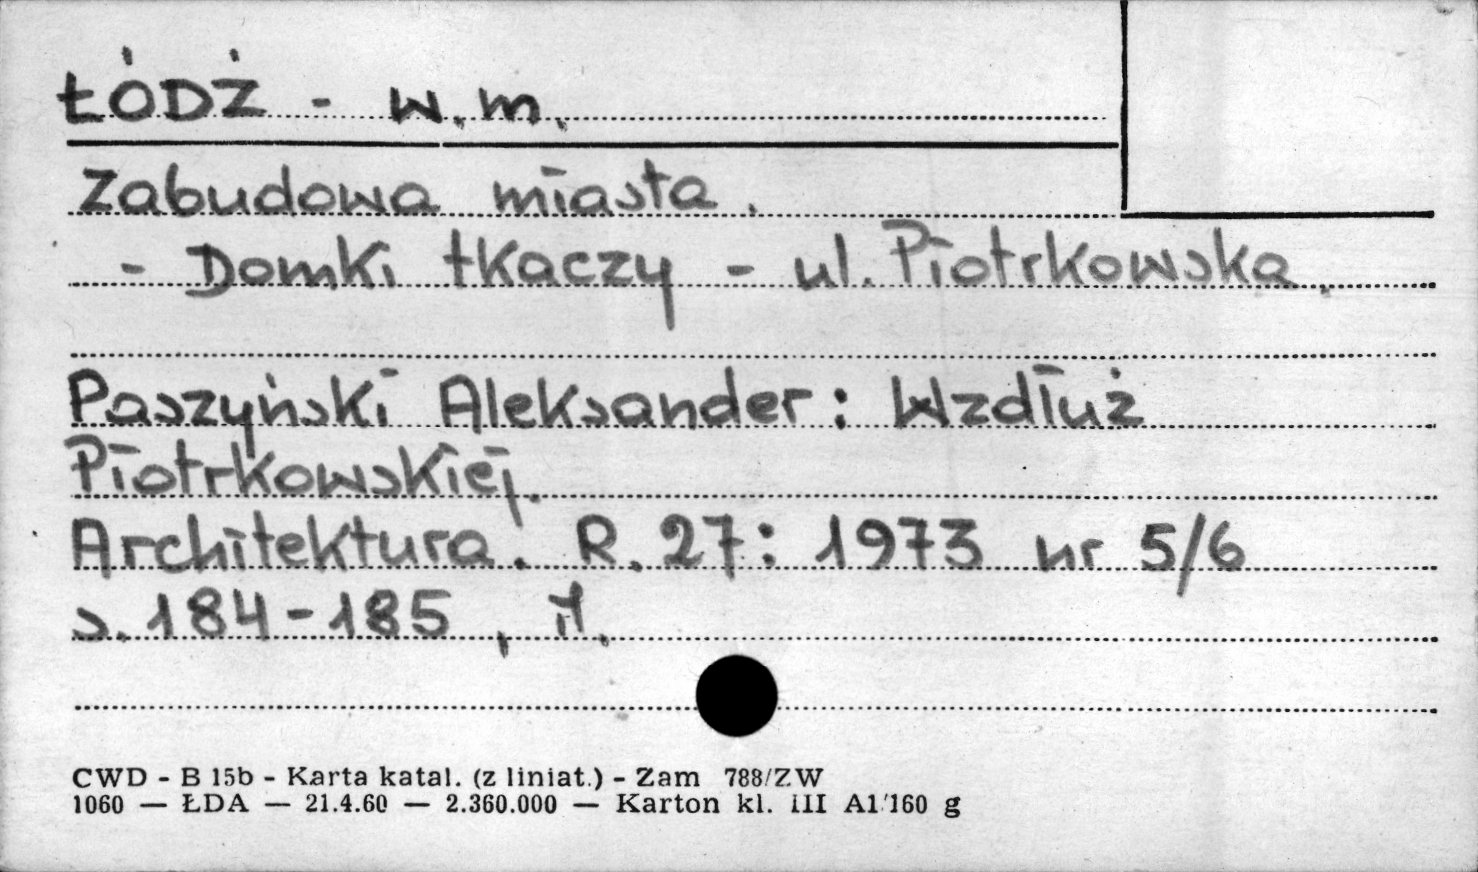 ŁÓDŹ - w.m.
Zabudowa miasta.
- Domki tkaczy - ul. Piotrkowska.
Paszyński Aleksander: Wzdłuż
Piotrkowskiej.
Architektura. R. 27: 1973 nr 5/6
s. 184-185, il.
CWD - B 15b - Karta katal. (z liniat.) - Zam 788/ZW
1060 — ŁDA — 21.4.60 — 2.360.000 — Karton kl. III A1/160 g